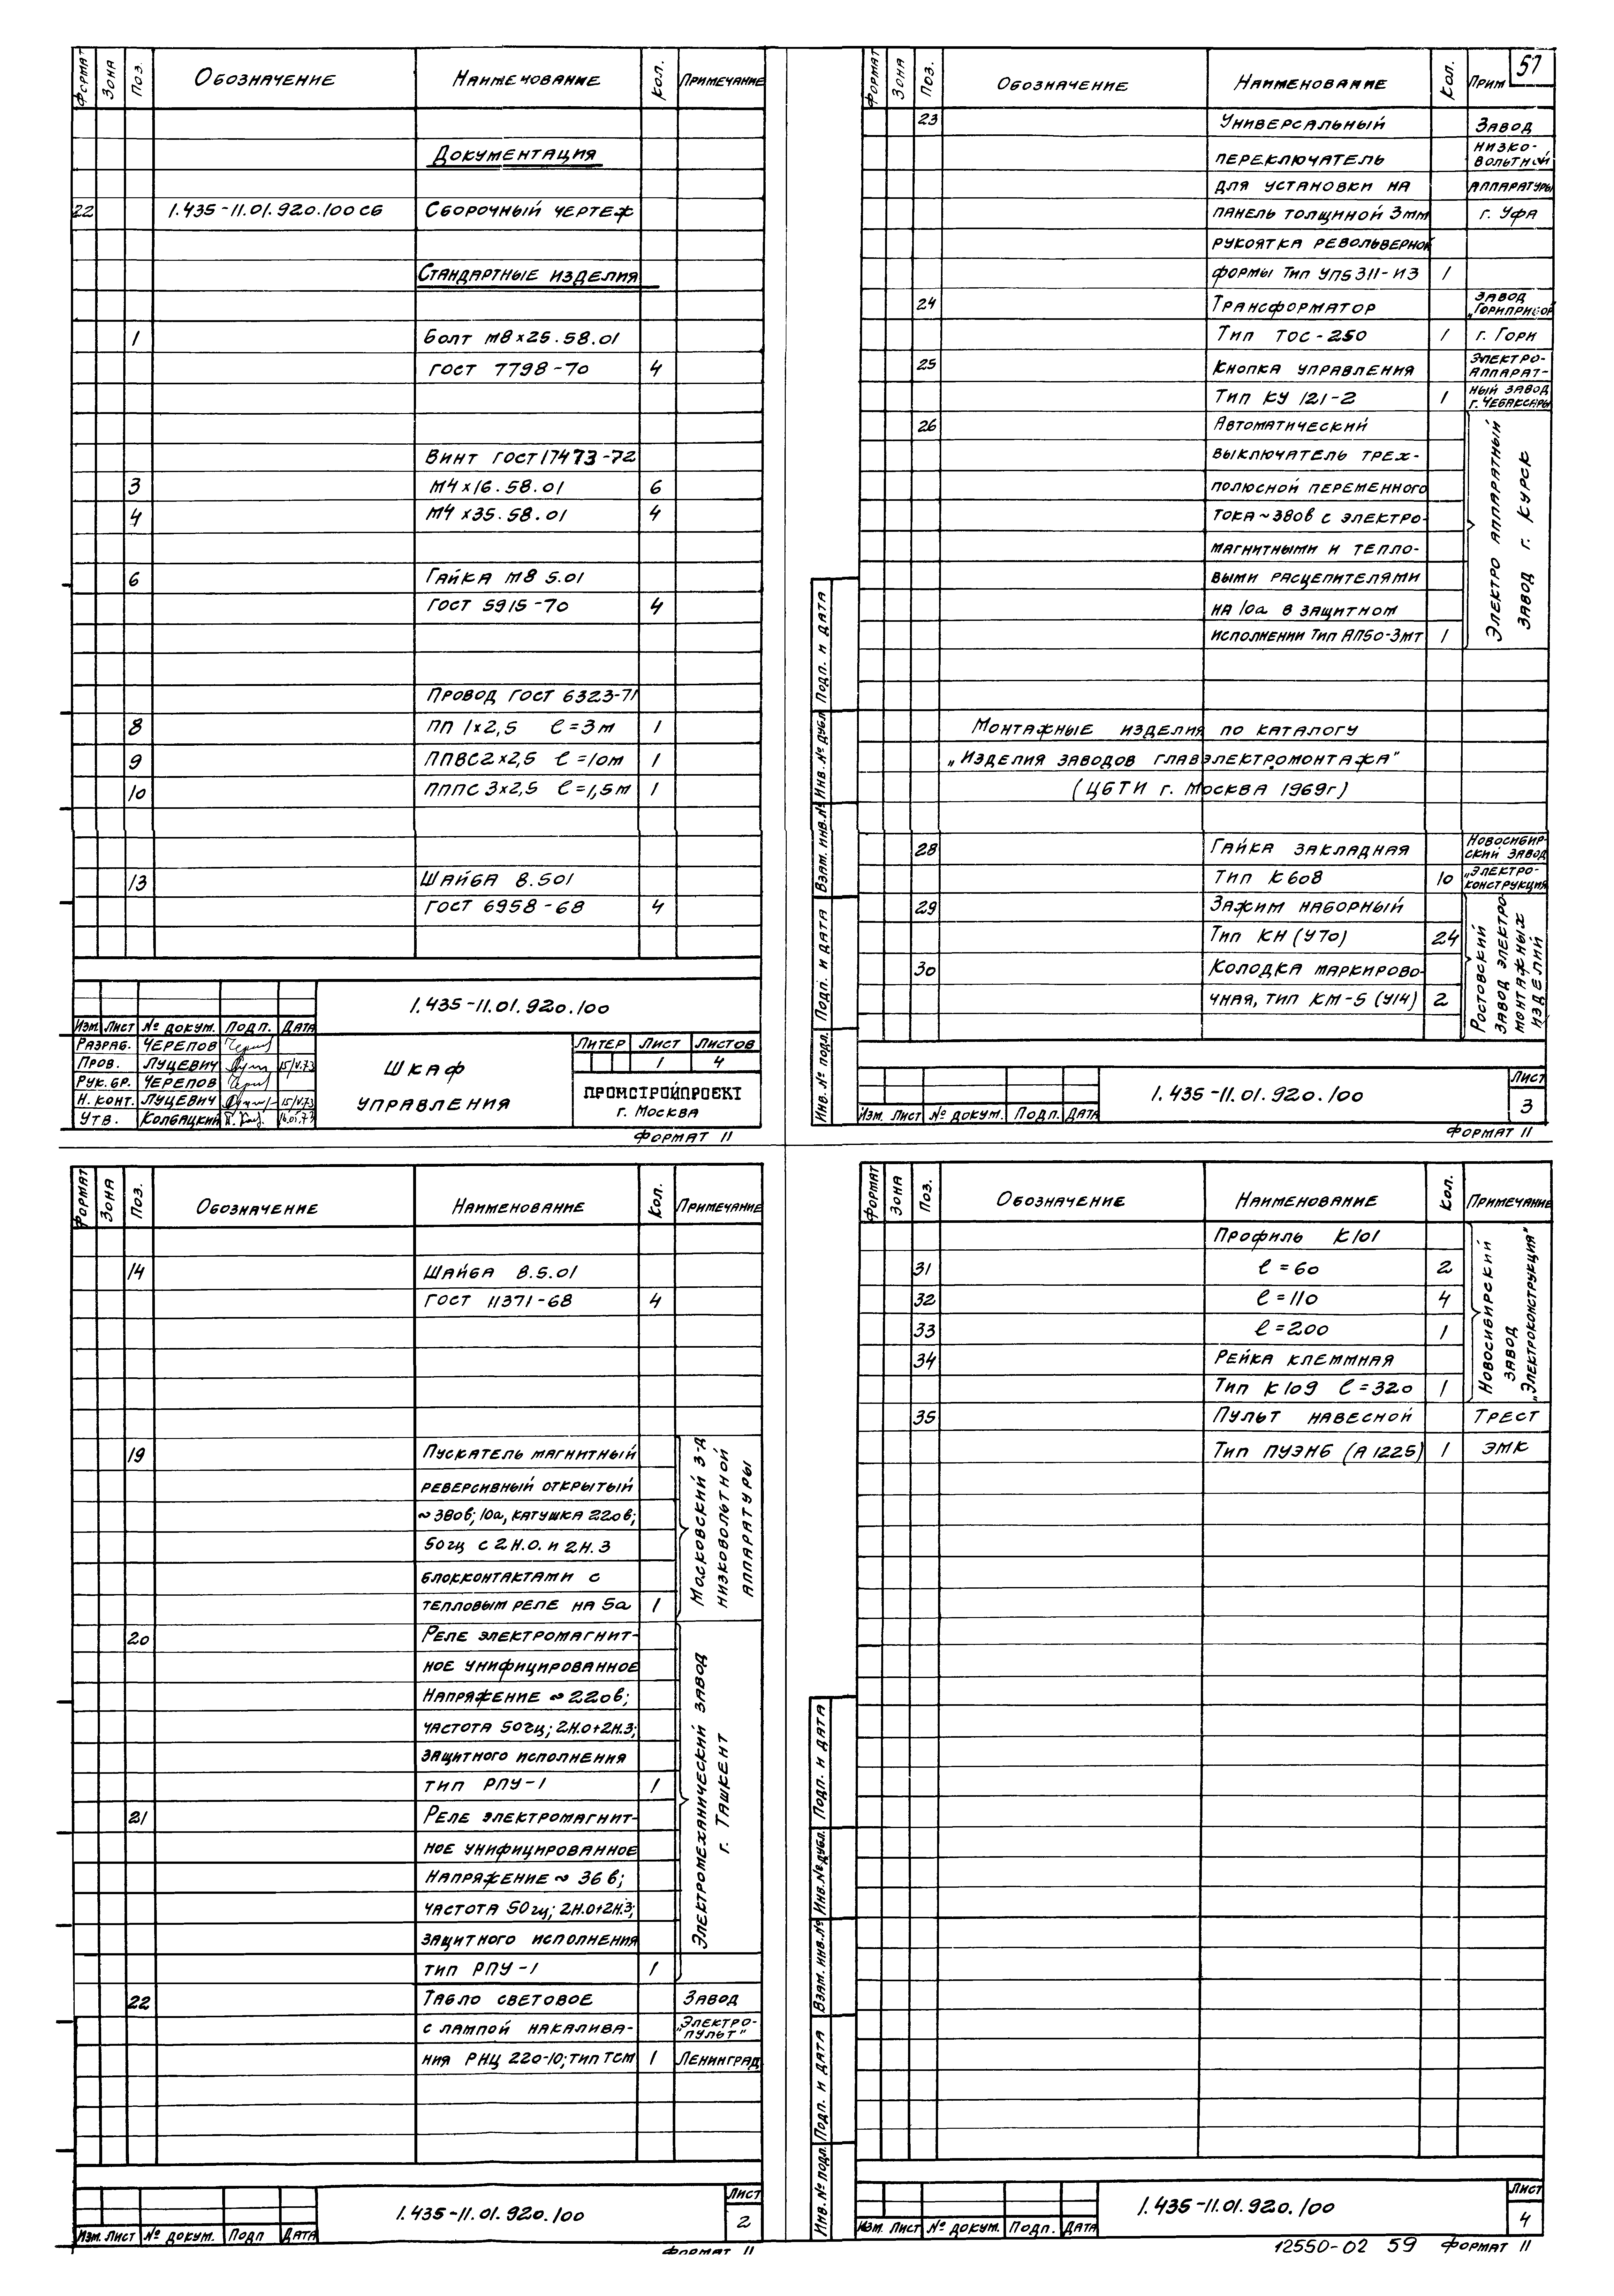 Формат Зона Поз. Обозначение Наименование Кол. Примечание
Документация
22 1.435-11.01.920.100 СБ Сборочный чертеж
Стандартные изделия
1 Болт М8×25.58.01
ГОСТ 7798-70 4
Винт ГОСТ 17473-72
3 М4×16.58.01 6
4 М4×35.58.01 4
6 Гайка М8 5.01
ГОСТ 5915-70 4
Провод ГОСТ 6323-71
8 ПП 1×2,5 ℓ=3м 1
9 ППВС2×2,5 ℓ=10м 1
10 ПППС 3×2,5 ℓ=1,5м 1
13 Шайба 8.501
ГОСТ 6958-68 4
1.435-11.01.920.100
Изм. Лист № докум. Подп. Дата
Разраб. Черепов
Пров. Луцевич 15/V.73
Рук.бр. Черепов
Н.конт. Луцевич 15/V.73
Утв. Колбацкий
Шкаф
управления
Литер Лист Листов
1 4
ПРОМСТРОЙПРОЕКТ
г. Москва
Формат 11
57
Формат Зона Поз. Обозначение Наименование Кол. Прим
23 Универсальный Завод
переключатель низко-
вольтной
для установки на аппаратуры
панель толщиной 3мм г. Уфа
рукоятка револьверной
формы Тип УП5311-И3 1
24 Трансформатор завод
„Гориприбор
Тип ТОС-250 1 г. Гори
25 Кнопка управления Электро-
аппарат-
Тип КУ 121-2 1 ный завод
г. Чебаксары
26 Автоматический
выключатель трех-
полюсной переменного
тока ~380в с электро-
магнитными и тепло-
выми расцепителями
на 10а в защитном
исполнении Тип АП50-3мт 1
Электро аппаратный
завод г. Курск
Монтажные изделия по каталогу
„Изделия заводов главэлектромонтажа"
(ЦБТИ г. Москва 1969г)
28 Гайка закладная Новосибир-
ский завод
Тип К608 10 „Электро-
конструкция
29 Зажим наборный
Тип КН (У70) 24
30 Колодка маркирово-
чная, тип КМ-5 (У14) 2
Ростовский
завод электро
монтажных
изделий
Инв. № подл. Подп. и дата Взам. инв. № Инв. № дубл Подп. и дата
Изм. Лист № докум. Подп. Дата
1.435-11.01.920.100
Лист
3
Формат 11
Формат Зона Поз. Обозначение Наименование Кол. Примечание
14 Шайба 8.5.01
ГОСТ 11371-68 4
19 Пускатель магнитный
реверсивный открытый
~380в; 10а, катушка 220в;
50гц с 2Н.О. и 2Н.З
блокконтактами с
тепловым реле на 5а 1
Московский з-д
низковольтной
аппаратуры
20 Реле электромагнит-
ное унифицированное
Напряжение ~220в;
частота 50гц; 2Н.О+2Н.З;
защитного исполнения
тип РПУ-1 1
21 Реле электромагнит-
ное унифицированное
Напряжение ~ 36в;
частота 50гц; 2Н.О+2Н.З;
защитного исполнения
тип РПУ-1 1
Электромеханический завод
г. Ташкент
22 Табло световое Завод
с лампой накалива- „Электро-
пульт"
ния РНЦ 220-10; тип ТСМ 1 Ленинград
Изм. Лист № докум. Подп Дата
1.435-11.01.920.100
Лист
2
Формат 11
Формат Зона Поз. Обозначение Наименование Кол. Примечание
Профиль К101
31 ℓ=60 2
32 ℓ=110 4
33 ℓ=200 1
34 Рейка клеммная
Тип К109 ℓ=320 1
Новосибирский
завод
„Электроконструкция"
35 Пульт навесной Трест
Тип ПУЭНБ (А1225) 1 ЭМК
Инв. № подл. Подп. и дата Взам. инв. № Инв. № дубл. Подп. и дата
Изм. Лист № докум. Подп. Дата
1.435-11.01.920.100
Лист
4
12550-02 59 Формат 11